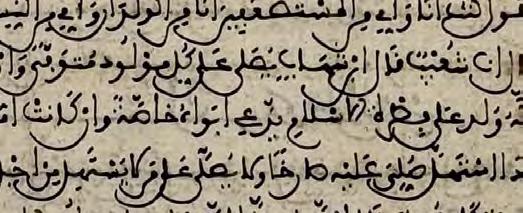 قول كنت انا وامي من المستضعفين انا من الولدان وامي من النس
انا شعيب قال ابن شهاب يصلى على كل مولود متوفى وان
نه ولد على فطرة الاسلام يدعي ابواه خاصة وان كانت ام
ذا استهل صلي عليه صارخا ولا يصلى على من لا يستهل من اجل